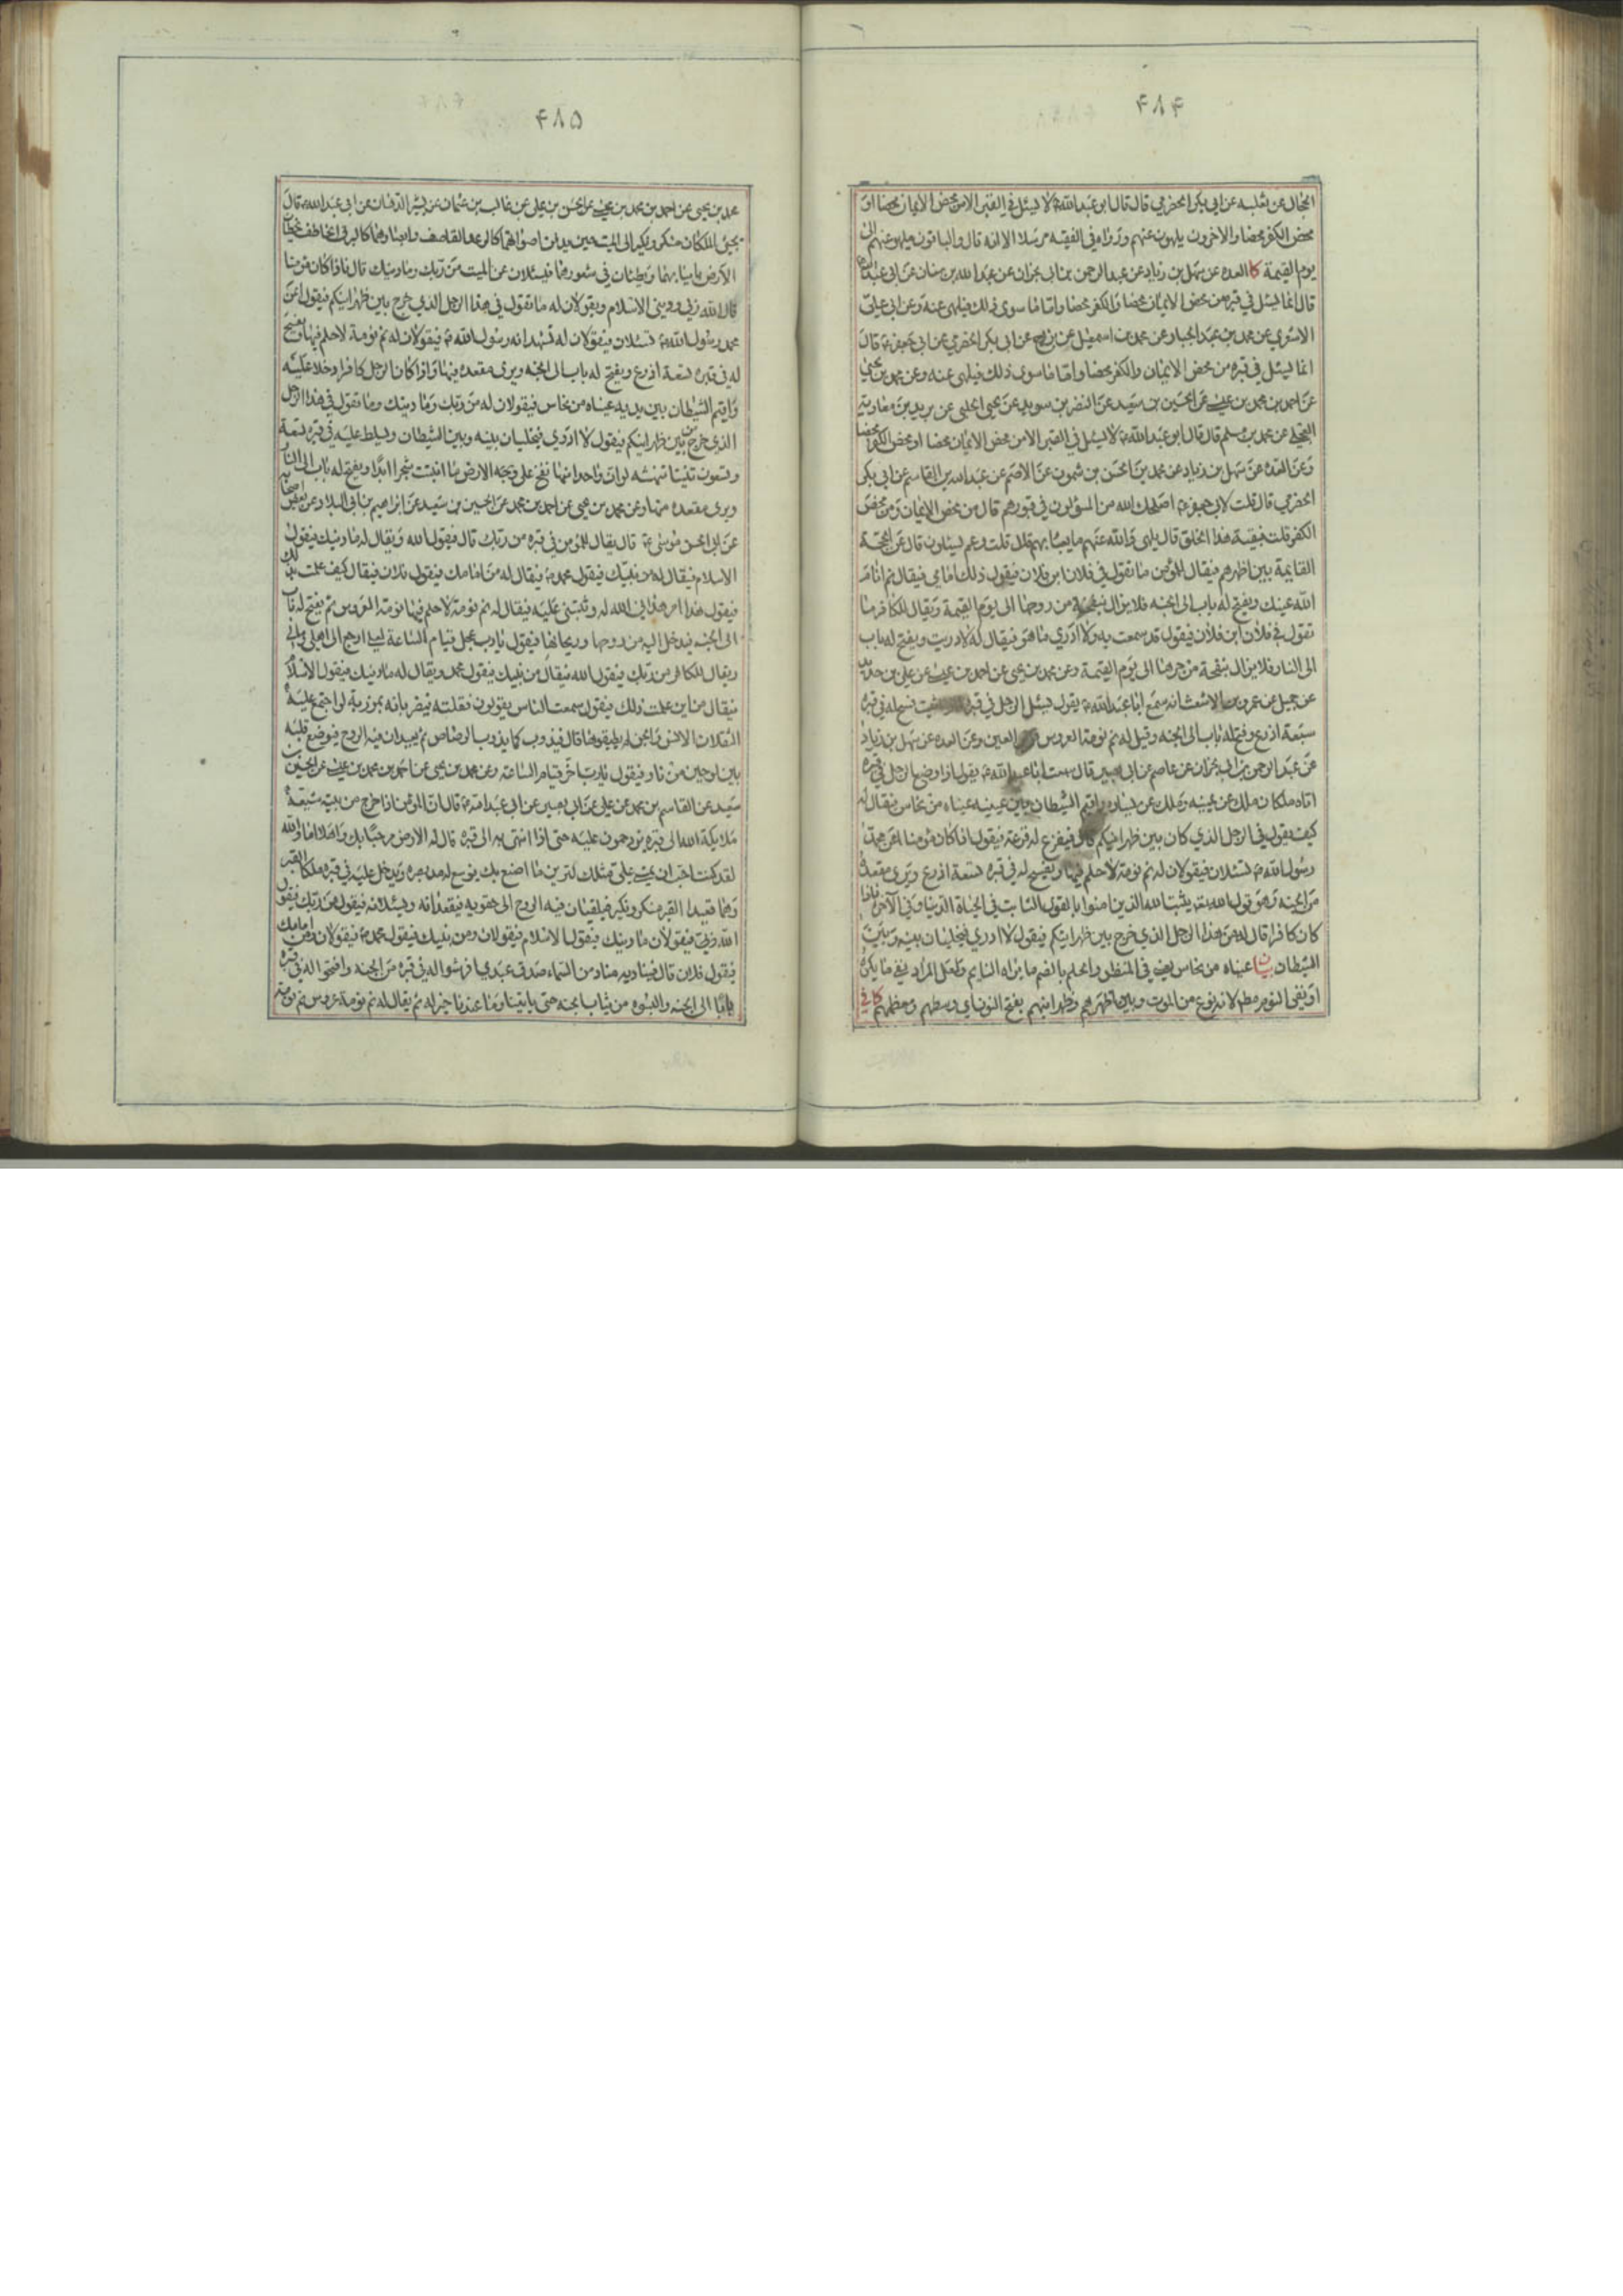 ۴۸۴
الحجال عن ثعلبه عن ابى بكر الحضرمي قال قال ابو عبد الله ع لا يسئل في القبر الا من محض الايمان محضا او
محض الكفر محضا والاخرون يلهون عنهم ورواه في الفقيه مرسلا الا انه قال والباقون ملهو عنهم الى
يوم القيمة كا العده عن سهل بن زياد عن عبد الرحمن بن ابى نجران عن عبد الله بن سنان عن ابى عبد الله ع
قال انما يسئل في قبره من محض الايمان محضا والكفر محضا واما ما سوى ذلك فيلهى عنه وعن ابى على
الاشعري عن محمد بن عبد الجبار عن محمد بن اسمعيل عن ابى بكر الحضرمي عن ابى جعفر ع قال
انما يسئل في قبره من محض الايمان والكفر محضا واما ما سوى ذلك فيلهى عنه وعن محمد بن يحيى
عن احمد بن محمد بن عيسى عن الحسين بن سعيد عن النضر بن سويد عن يحيى الحلبى عن بريد بن معاويه
عن محمد بن مسلم قال قال ابو عبد الله ع لا يسئل في القبر الا من محض الايمان محضا او محض الكفر محضا
وعن العده عن سهل بن زياد عن محمد بن الحسن بن شمون عن الاصم عن عبد الله بن القاسم عن ابى بكر
الحضرمي قال قلت لابى جعفر ع اصلحك الله من المسؤلون في قبورهم قال من محض الايمان ومن محض
الكفر قلت فبقية هذا الخلق قال يلهى والله عنهم ما يعبا بهم قال قلت وعم يسئلون قال عن الحجة
القايمة بين اظهرهم فيقال للمؤمن ما تقول في فلان ابن فلان فيقول ذلك امامى فيقال نم انام
الله عينك ويفتح له باب الى الجنه فلا يزال من روحها الى يوم القيمة ويقال للكافر ما
تقول في فلان ابن فلان فيقول قد سمعت به ولا ادري ما هو فيقال له لا دريت ويفتح له باب
الى النار فلا يزال بنفحة من حرها الى يوم القيمة وعن محمد بن يحيى عن احمد بن عيسى عن على بن حديد
عن جميل عن عمرو بن الاشعث انه سمع ابا عبد الله ع يقول يسئل الرجل في قبره فسح له في قبره
سبعة اذرع وفتح له باب الى الجنه وقيل له نم نومة العروس العين وعن العده عن سهل بن زياد
عن عبد الرحمن بن ابى نجران عن عاصم عن ابى بصير قال سمعت ابا عبد الله ع يقول اذا وضع الرجل في قبره
اتاه ملكان ملك عن يمينه وملك عن يساره واقيم الشيطان بين عينيه عيناه من نحاس فيقال له
كيف يقول في الرجل الذي كان بين ظهرانيكم قال فيفزع له فزعة فيقول اذا كان مؤمنا اعن محمد
رسول الله ص تسئلان فيقولان له نم نومة لا حلم فيها ويفسح له في قبره تسعة اذرع ويرى مقعده
من الجنه وهو قول الله يثبت الله الذين امنوا بالقول الثابت في الحياة الدنيا وفي الآخره فاذا
كان كافرا قال له من هذا الرجل الذي خرج بين ظهرانيكم فيقول لا ادري فيخليان بينه وبين
الشيطان بيان عيناه من نحاس يعنى في المنظر والحلم بالضم ما يراه النايم ولعل المراد نفى ما يكره
او نفى النوم مطلقا لانه نوع من الموت وبين ظهرانيهم بفتح النون اى وسطهم ومعظمهم كافي
۴۸۵
محمد بن يحيى عن احمد بن محمد بن عيسى عن الحسن بن على عن غالب بن عثمان عن بشير الدهان عن ابى عبد الله ع قال
يجئ الملكان منكر ونكير الى الميت حين يدفن اصواتهما كالرعد القاصف وابصارهما كالبرق الخاطف يخطان
الارض بانيابهما ويطئان في شعورهما فيسئلان عن الميت من ربك وما دينك قال فاذا كان مؤمنا
قال الله ربي وديني الاسلام ويقولان له ما تقول في هذا الرجل الذي خرج بين ظهرانيكم فيقول اعن
محمد رسول الله ص تسئلان فيقولان له تشهد انه رسول الله ص فيقولان له نم نومة لا حلم فيها ويفسح
له في قبره تسعة اذرع ويفتح له باب الى الجنه ويرى مقعده فيها واذا كان الرجل كافرا دخلا عليه
واقيم الشيطان بين يديه عيناه من نحاس فيقولان له من ربك وما دينك وما تقول في هذا الرجل
الذي خرج من بين ظهرانيكم فيقول لا ادري فيخليان بينه وبين الشيطان ويسلط عليه في قبره تسعة
وتسعون تنينا تنهشه لو ان واحدا منها نفخ على وجه الارض ما انبتت شجرا ابدا ويفتح له باب الى النار
ويرى مقعده منها وعن محمد بن يحيى عن احمد بن محمد عن الحسين بن سعيد عن ابراهيم بن ابى البلاد عن بعض اصحابه
عن ابى الحسن موسى ع قال يقال للمؤمن في قبره من ربك قال فيقول الله ويقال له ما دينك فيقول
الاسلام فيقال له من نبيك فيقول محمد ص فيقال له من امامك فيقول فلان فيقال كيف علمت بذلك
فيقول هذا امر هداني الله له وثبتني عليه فيقال له نم نومة لا حلم فيها نومة العروس ثم يفتح له باب
الى الجنه فيدخل اليه من روحها وريحانها فيقول يا رب عجل قيام الساعة لعلى ارجع الى اهلى ومالى
ويقال للكافر من ربك فيقول الله فيقال من نبيك فيقول محمد ويقال له ما دينك فيقول الاسلام
فيقال من اين علمت ذلك فيقول سمعت الناس يقولون فقلته فيضربانه بمرزبة لو اجتمع عليه
الثقلان الانس والجن لم يطيقوها قال فيذوب كما يذوب الرصاص ثم يعيدان فيه الروح فيوضع قلبه
بين لوحين من نار فيقول يا رب اخر قيام الساعة وعن محمد بن يحيى عن احمد بن محمد بن عيسى عن الحسين بن
سعيد عن القاسم بن محمد عن على عن ابى بصير عن ابى عبد الله ع قال ان المؤمن اذا خرج من بيته شيعه
ملايكة الله الى قبره يزدحمون عليه حتى اذا انتهى به الى قبره قال له الارض مرحبا بك واهلا اما والله
لقد كنت احب ان يمشى على مثلك لترين ما اصنع بك يوسع له مد بصره ويدخل عليه في قبره ملكا القبر
وهما قعيدا القبر منكر ونكير فيلقيان فيه الروح الى حقويه فيقعدانه ويسئلانه فيقولان من ربك فيقول
الله ربي فيقولان ما دينك فيقول الاسلام فيقولان ومن نبيك فيقول محمد ص فيقولان ومن امامك
فيقول فلان قال فيناديه مناد من السماء صدق عبدي افرشوا له في قبره من الجنه وافتحوا له في قبره
بابا الى الجنه والبسوه من ثياب الجنه حتى ياتينا وما عندنا خير له ثم يقال له نم نومة عروس نم نومة